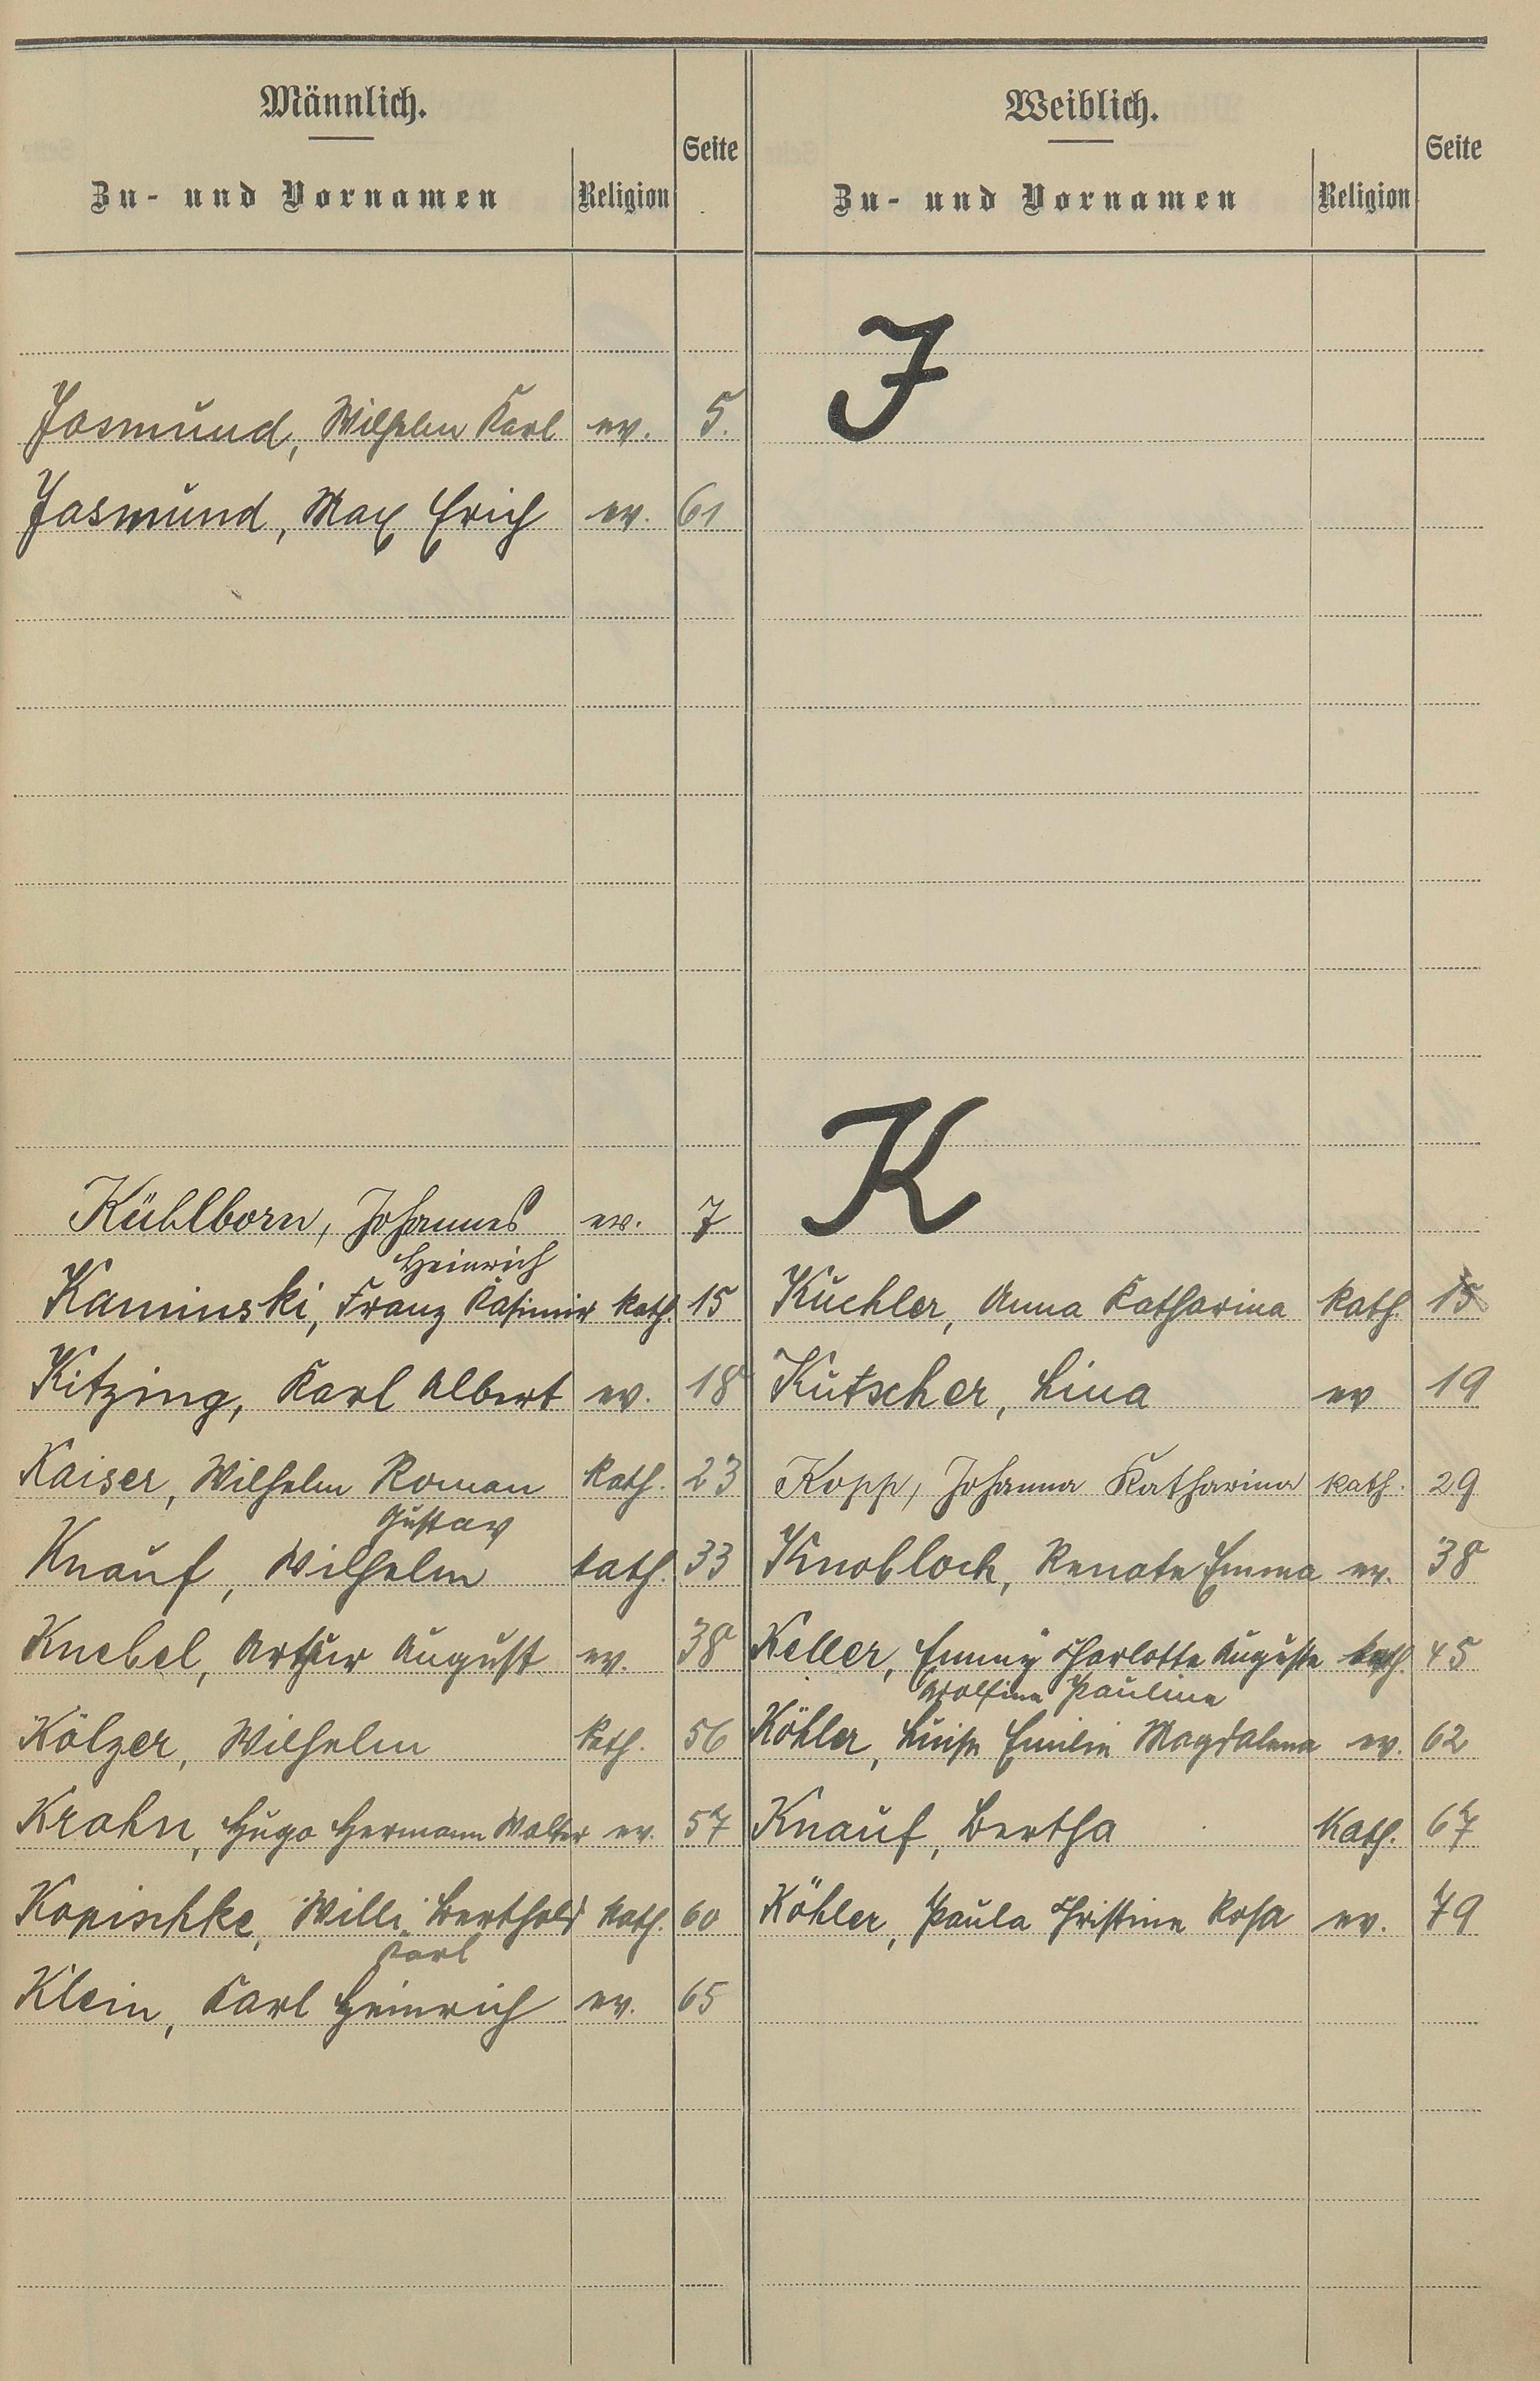 Männlich.
Zu- und Vornamen Religion Seite
Weiblich.
Zu- und Vornamen Religion Seite
J
Jasmund, Wilhelm Karl ev. 5.
Jasmund, Max Erich ev. 61
K
Kühlborn, Johannes ev. 7
Heinrich
Kaminski, Franz Kasimir kath. 15
Küchler, Anna Katharina kath. 15
Kitzing, Karl Albert ev. 18
Kutscher, Lina ev 19
Kaiser, Wilhelm Roman kath. 23
Kopp, Johanna Katharina kath. 29
Gustav
Knauf, Wilhelm kath. 33
Knobloch, Renate Emma ev. 38
Knebel, Arthur August ev. 38
Keller, Emmy Charlotte Auguste kath. 45
Adolfine Pauline
Kölzer, Wilhelm kath. 56
Köhler, Luise Emilie Magdalena ev. 62
Krahn, Hugo Hermann Walter ev. 57
Knauf, Bertha Kath. 67
Kopischke, Willi Berthold kath. 60
Köhler, Paula Christine Rosa ev. 79
Karl
Klein, Karl Heinrich ev. 65